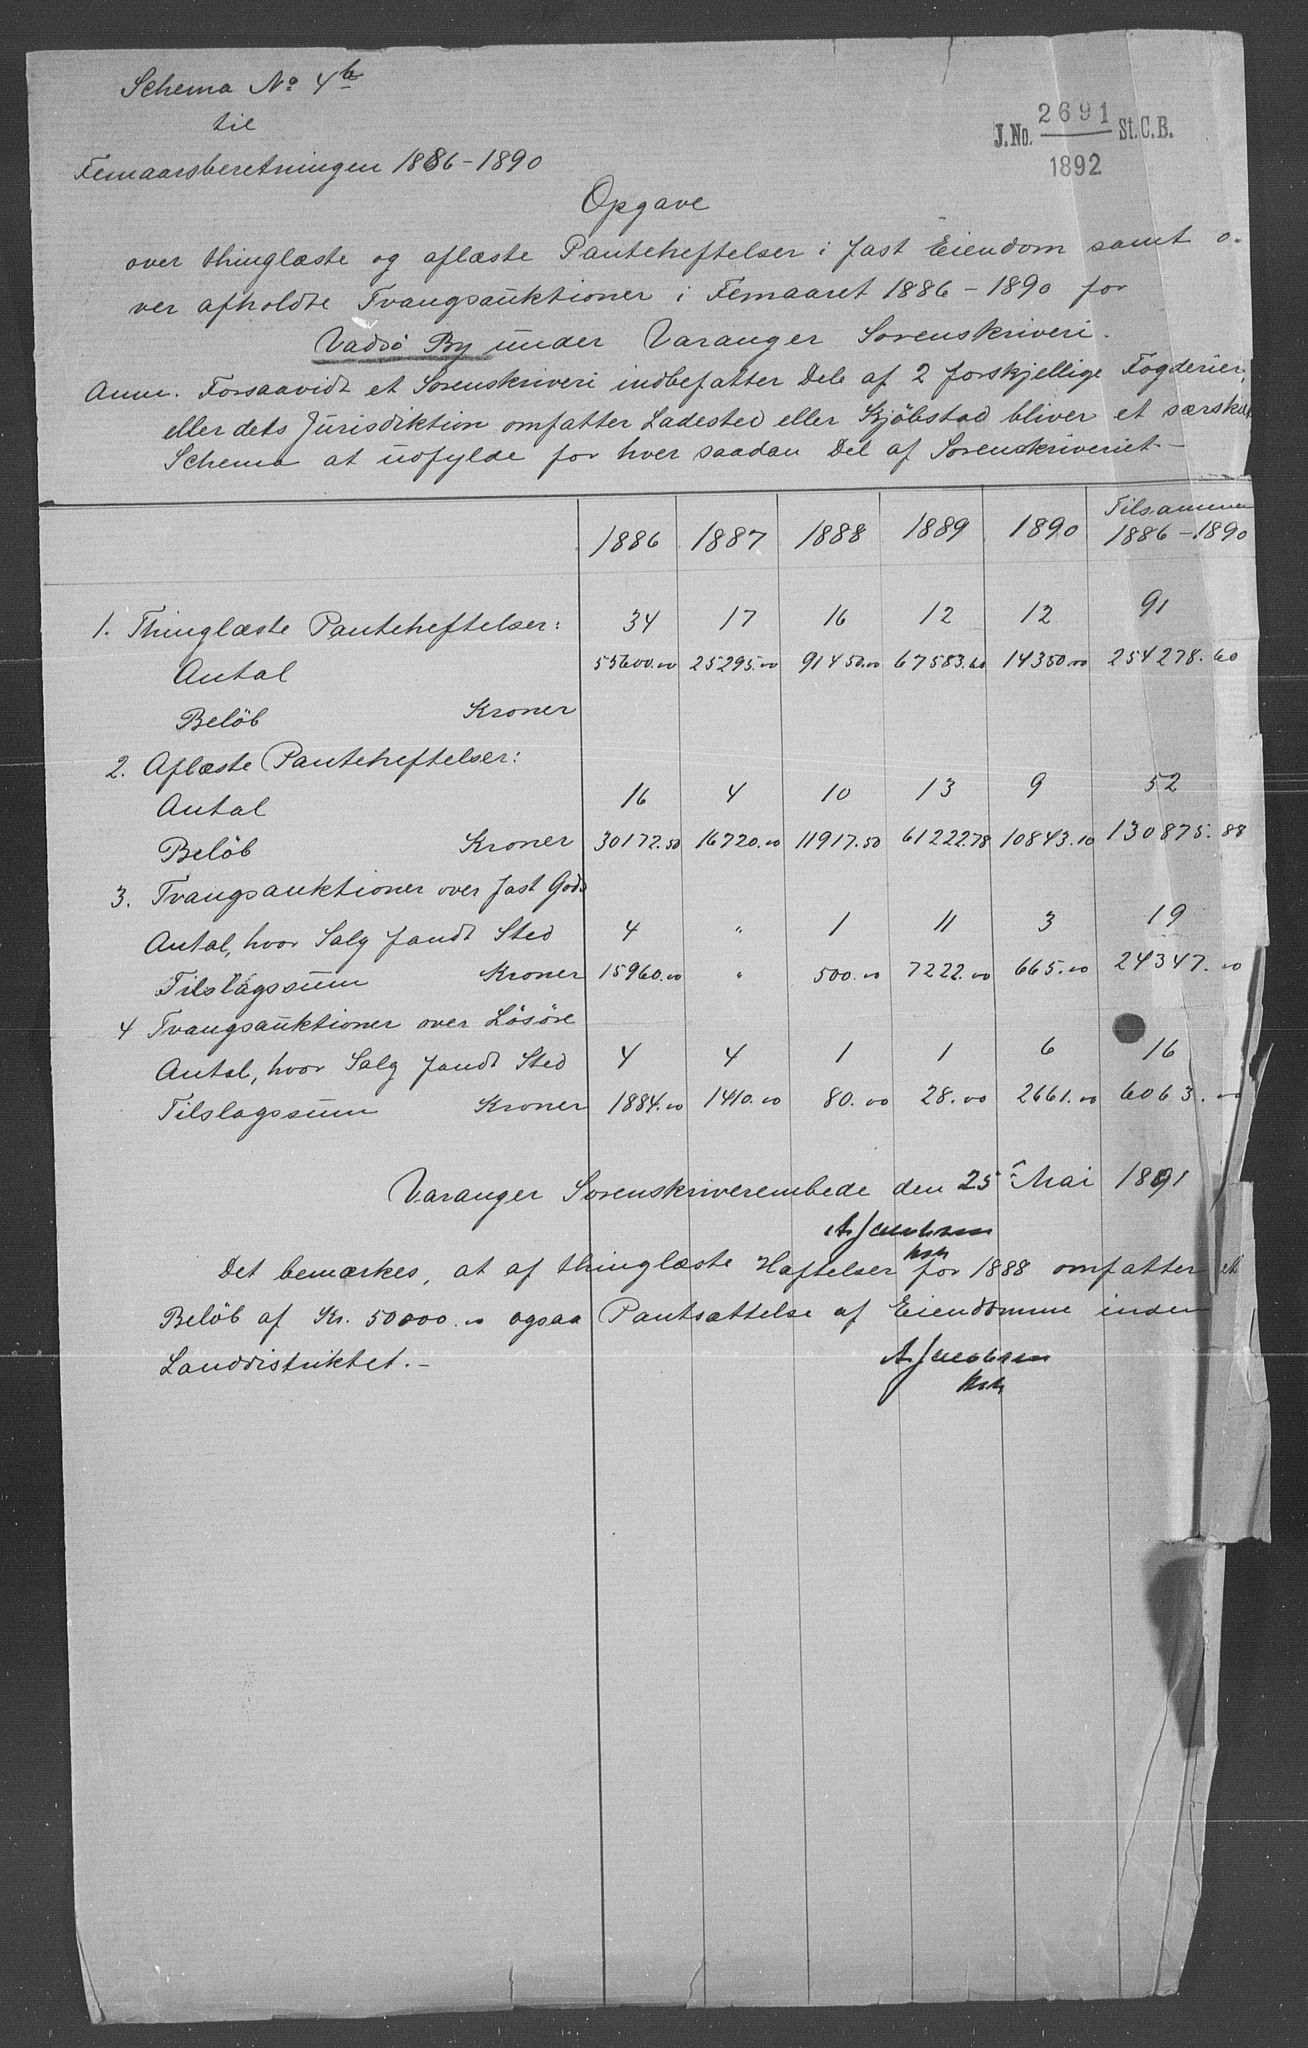 Schema No 4b
til
Femaarsberetningen 1886-1890
J.No. 2691 St.C.B.
1892
Opgave
over thinglæste og aflæste Panteheftelser i fast Eiendom samt o-
ver afholdte Tvangsauktioner i Femaaret 1886-1890 for
Vadsö By under Varanger Sorenskriveri.
Anm. Forsaavidt et Sorenskriveri indbefatter Dele af 2 forskjellige Fogderier,
eller dets Jurisdiktion omfatter Ladested eller Kjöbstad bliver et særskilt
Schema at udfylde for hver saadan Del af Sorenskriveriet.-
1886 1887 1888 1889 1890 Tilsammen 1886-1890
1. Thinglæste Panteheftelser: 34 17 16 12 12 91
Antal 55600.00 25295.00 91450.00 67583.60 14350.00 254278.60
Belöb Kroner
2. Aflæste Panteheftelser:
Antal 16 4 10 13 9 52
Belöb Kroner 30172.50 16720.00 11917.50 61222.78 10843.10 130875.88
3. Tvangsauktioner over fast Gods
Antal, hvor Salg fandt Sted 4 " 1 11 3 19
Tilslagssum Kroner 15960.00 " 500.00 7222.00 665.00 24347.00
4 Tvangsauktioner over Lösöre
Antal, hvor Salg fandt Sted 4 4 1 1 6 16
Tilslagssum Kroner 1884.00 1410.00 80.00 28.00 2661.00 6063.00
Varanger Sorenskriverembede den 25 Mai 1891
A Jacobsen
kst
Det bemærkes, at af thinglæste Hæftelser for 1888 omfatter et
Belöb af Kr. 50000.00 ogsaa Pantsættelse af Eiendomme inden
Landdistriktet.-
A Jacobsen
kst